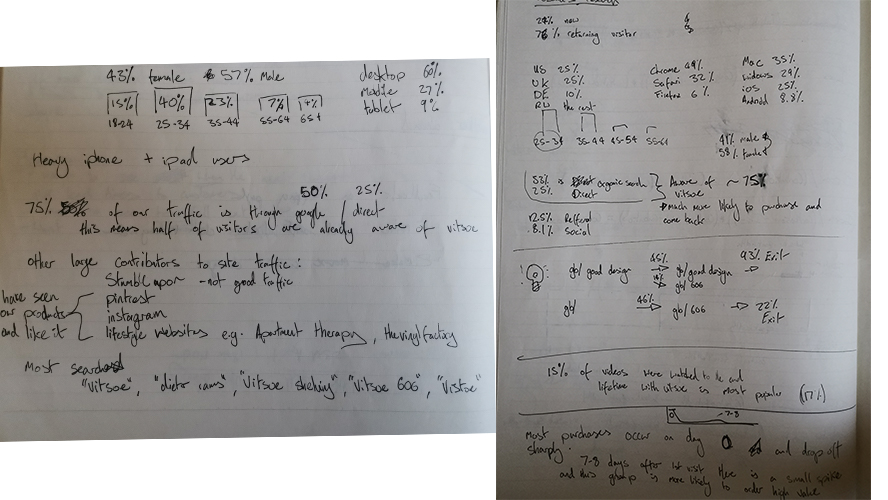 43% female 57% Male
desktop 60%
mobile 27%
tablet 9%
15% 40% 23% 7% 1+%
18-24 25-34 35-44 55-64 65+
Heavy iphone + ipad users
50% 25%
75% of our traffic is through google / direct
this means half of visitors are already aware of vitsoe
other large contributors to site traffic:
Stumble upon - not good traffic
pintrest
instagram
lifestyle websites e.g. Apartment therapy, thevinylfactory
have seen
our products
and like it
Most searched
"Vitsoe", "dieter rams", "Vitsoe shelving", "Vitsoe 606", "Vistoe"
24% new
76% returning visitor
US 25%
UK 25%
DE 10%
RU the rest
Chrome 49%
Safari 32%
Firefox 6%
Mac 35%
Windows 29%
iOS 25%
Android 8.8%
25-34 35-44 45-54 55-64
41% male
58% female
53% is organic search
25% Direct
Aware of ~ 75%
vitsoe
much more likely to purchase and
come back
12.5% Referral
8.1% Social
gb/good design 45% gb/good design 93% Exit
18% gb/606
gb/ 46% gb/606 22%
Exit
15% of videos were watched to the end
lifetime with vitsoe is most popular (17%)
7-8
Most purchases occur on day 0 and drop off
sharply.
7-8 days after 1st visit there is a small spike
and this group is more likely to order high value